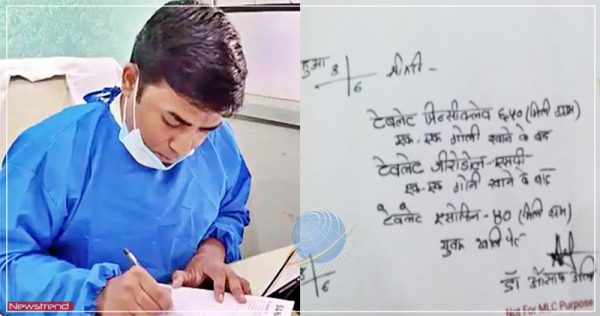 टेबलेट प्रिन्सीक्लेव ६५० (मिली ग्राम)
एक-एक गोली खाने के बाद
टेबलेट जीरोडोल-एसपी
एक-एक गोली खाने के बाद
टेबलेट एसोफिन-४० (मिली ग्राम)
खाली पेट
डॉ ऑसाफ अली
Not For MLC Purpose
Newstrend